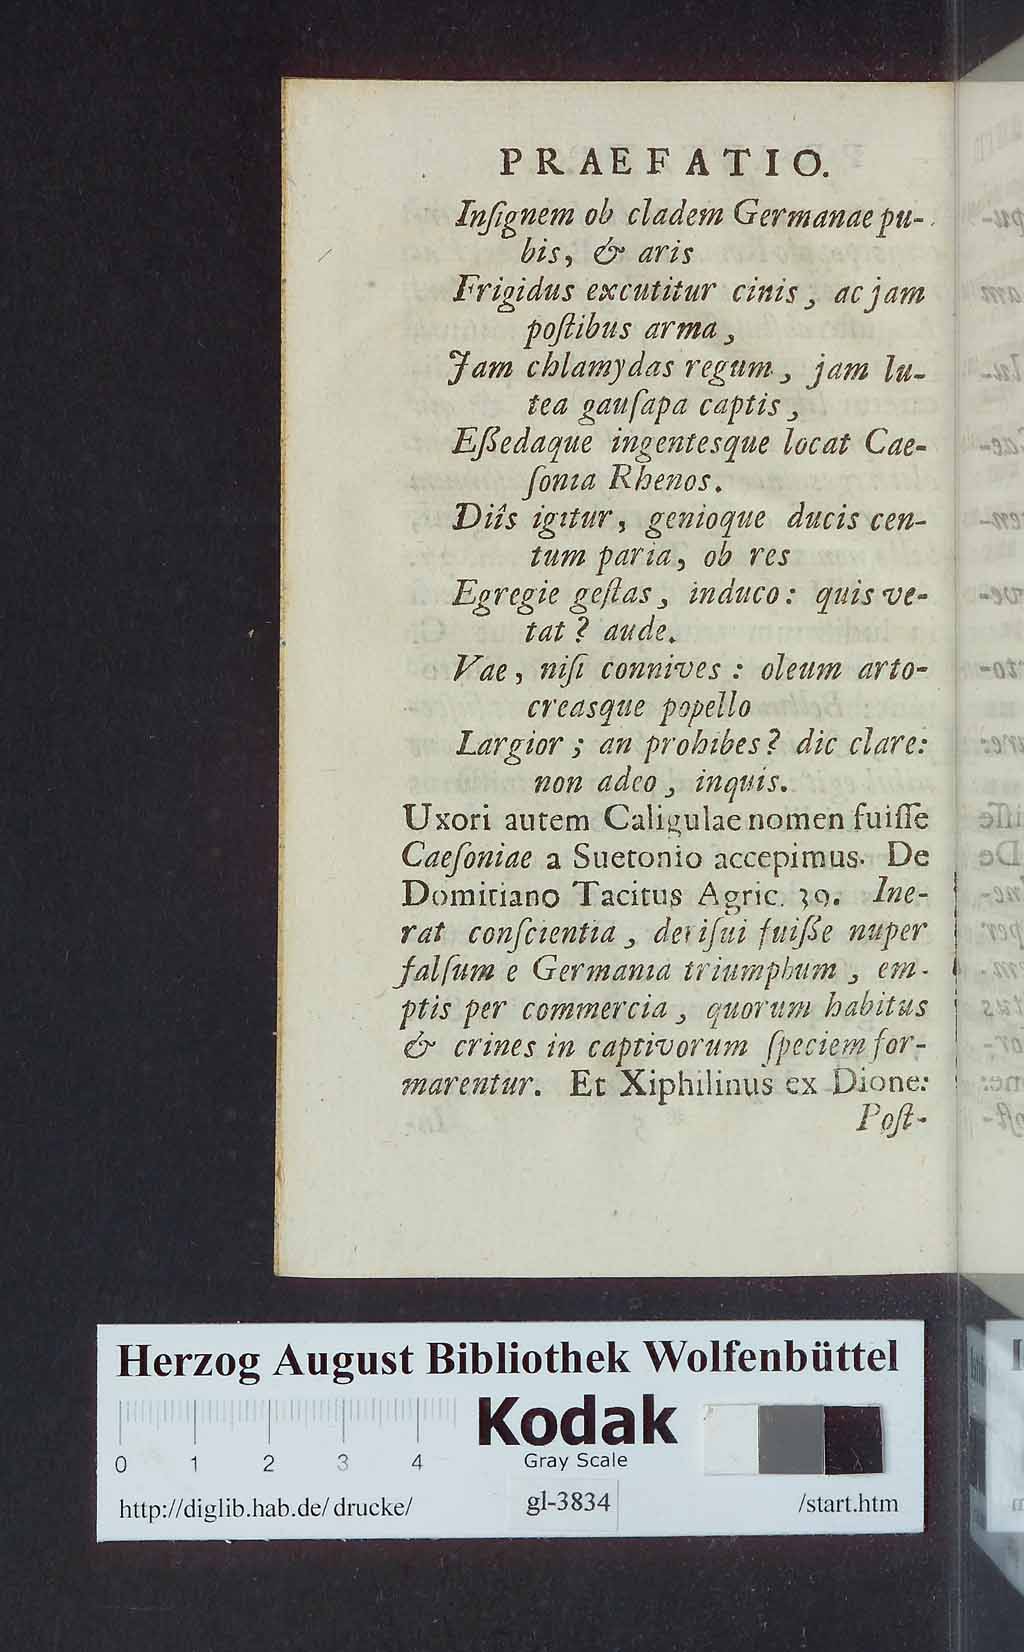 PRAEFATIO.
Inſignem ob cladem Germanae pu-
bis, & aris
Frigidus excutitur cinis, ac jam
poſtibus arma,
Jam chlamydas regum, jam lu-
tea gauſapa captis,
Eßedaque ingentesque locat Cae-
ſonia Rhenos.
Diîs igitur, genioque ducis cen-
tum paria, ob res
Egregie geſtas, induco: quis ve-
tat? aude.
Vae, niſi connives: oleum arto-
creasque popello
Largior; an prohibes? dic clare:
non adeo, inquis.
Uxori autem Caligulae nomen fuiſſe
Caeſoniae a Suetonio accepimus. De
Domitiano Tacitus Agric. 39. Ine-
rat conſcientia, deriſui fuiße nuper
falſum e Germania triumphum, em-
ptis per commercia, quorum habitus
& crines in captivorum ſpeciem for-
marentur. Et Xiphilinus ex Dione:
Poſt-
Herzog August Bibliothek Wolfenbüttel
Kodak
Gray Scale
0 1 2 3 4
http://diglib.hab.de/drucke/ gl-3834 /start.htm